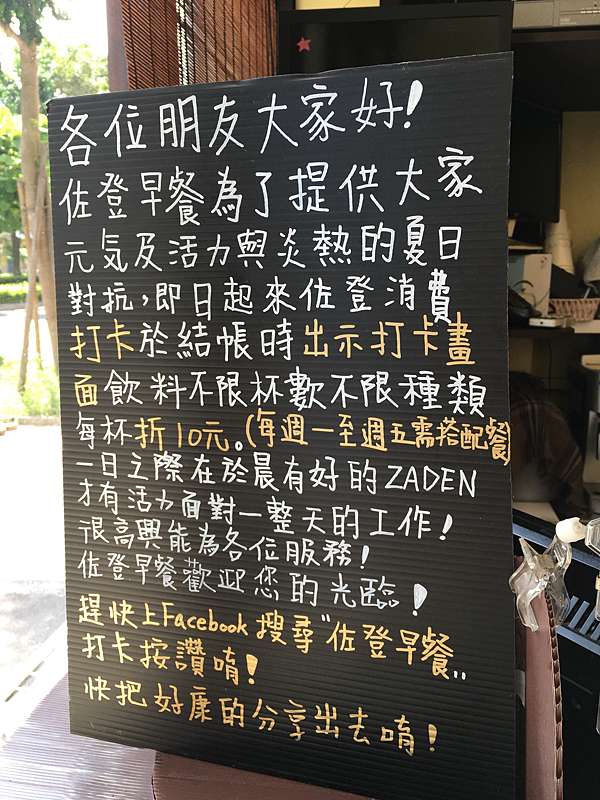 各位朋友大家好!
佐登早餐為了提供大家
元気及活力與炎熱的夏日
對抗,即日起來佐登消費
打卡於結帳時出示打卡畫
面飲料不限杯數不限種類
每杯折10元。(每週一至週五需搭配餐)
一日之際在於晨有好的ZADEN
才有活力面對一整天的工作!
很高興能為各位服務!
佐登早餐歡迎您的光臨!
趕快上Facebook搜尋"佐登早餐"
打卡按讚唷!
快把好康的分享出去唷!